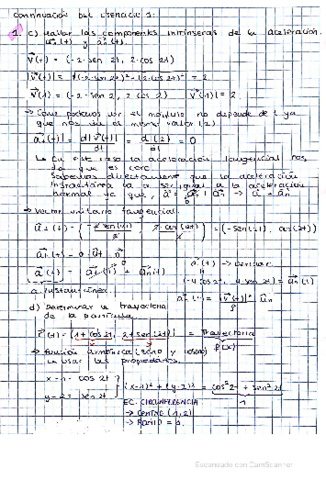 continuación del ejercicio 1:
1 c) Hallar las componentes intrínsecas de la aceleración.
a⃗t(t) y a⃗n(t).
v⃗(t) = (-2·sen 2t, 2·cos 2t)
|v⃗(t)| = √(-2·sen 2t)²+(2·cos 2t)² = 2
v⃗(1) = (-2·sen 2, 2 cos 2) |v⃗(1)| = 2
→ Como podemos ver el módulo no depende de t ya
que nos da el mismo valor (2)
a⃗t(t) = d|v⃗(t)|/dt = d(2)/dt = 0
En este caso la aceleración tangencial nos
da que es cero.
Sabemos directamente que la aceleración
instantánea va a ser igual a la aceleración
normal ya que, a⃗ = a⃗t + a⃗n → a⃗ = a⃗n
→ Vector unitario tangencial:
a⃗t(t) = 0 · u⃗t
a⃗(t) = a⃗t(t) + a⃗n(t)
a⃗(t) → derivar
a. instantánea
d) Determinar la trayectoria
de la partícula.
r⃗(t) = (1 + cos 2t, 2 + sen(2t)) = Trayectoria
→ Función armónica (seno y coseno)
usar las propiedades
x - 1 = cos 2t
y - 2 = sen 2t
(x-1)² + (y-2)² = cos² 2t + sen² 2t
1
EC. CIRCUNFERENCIA
→ CENTRO (1,2)
→ RADIO = 1
Escaneado con CamScanner